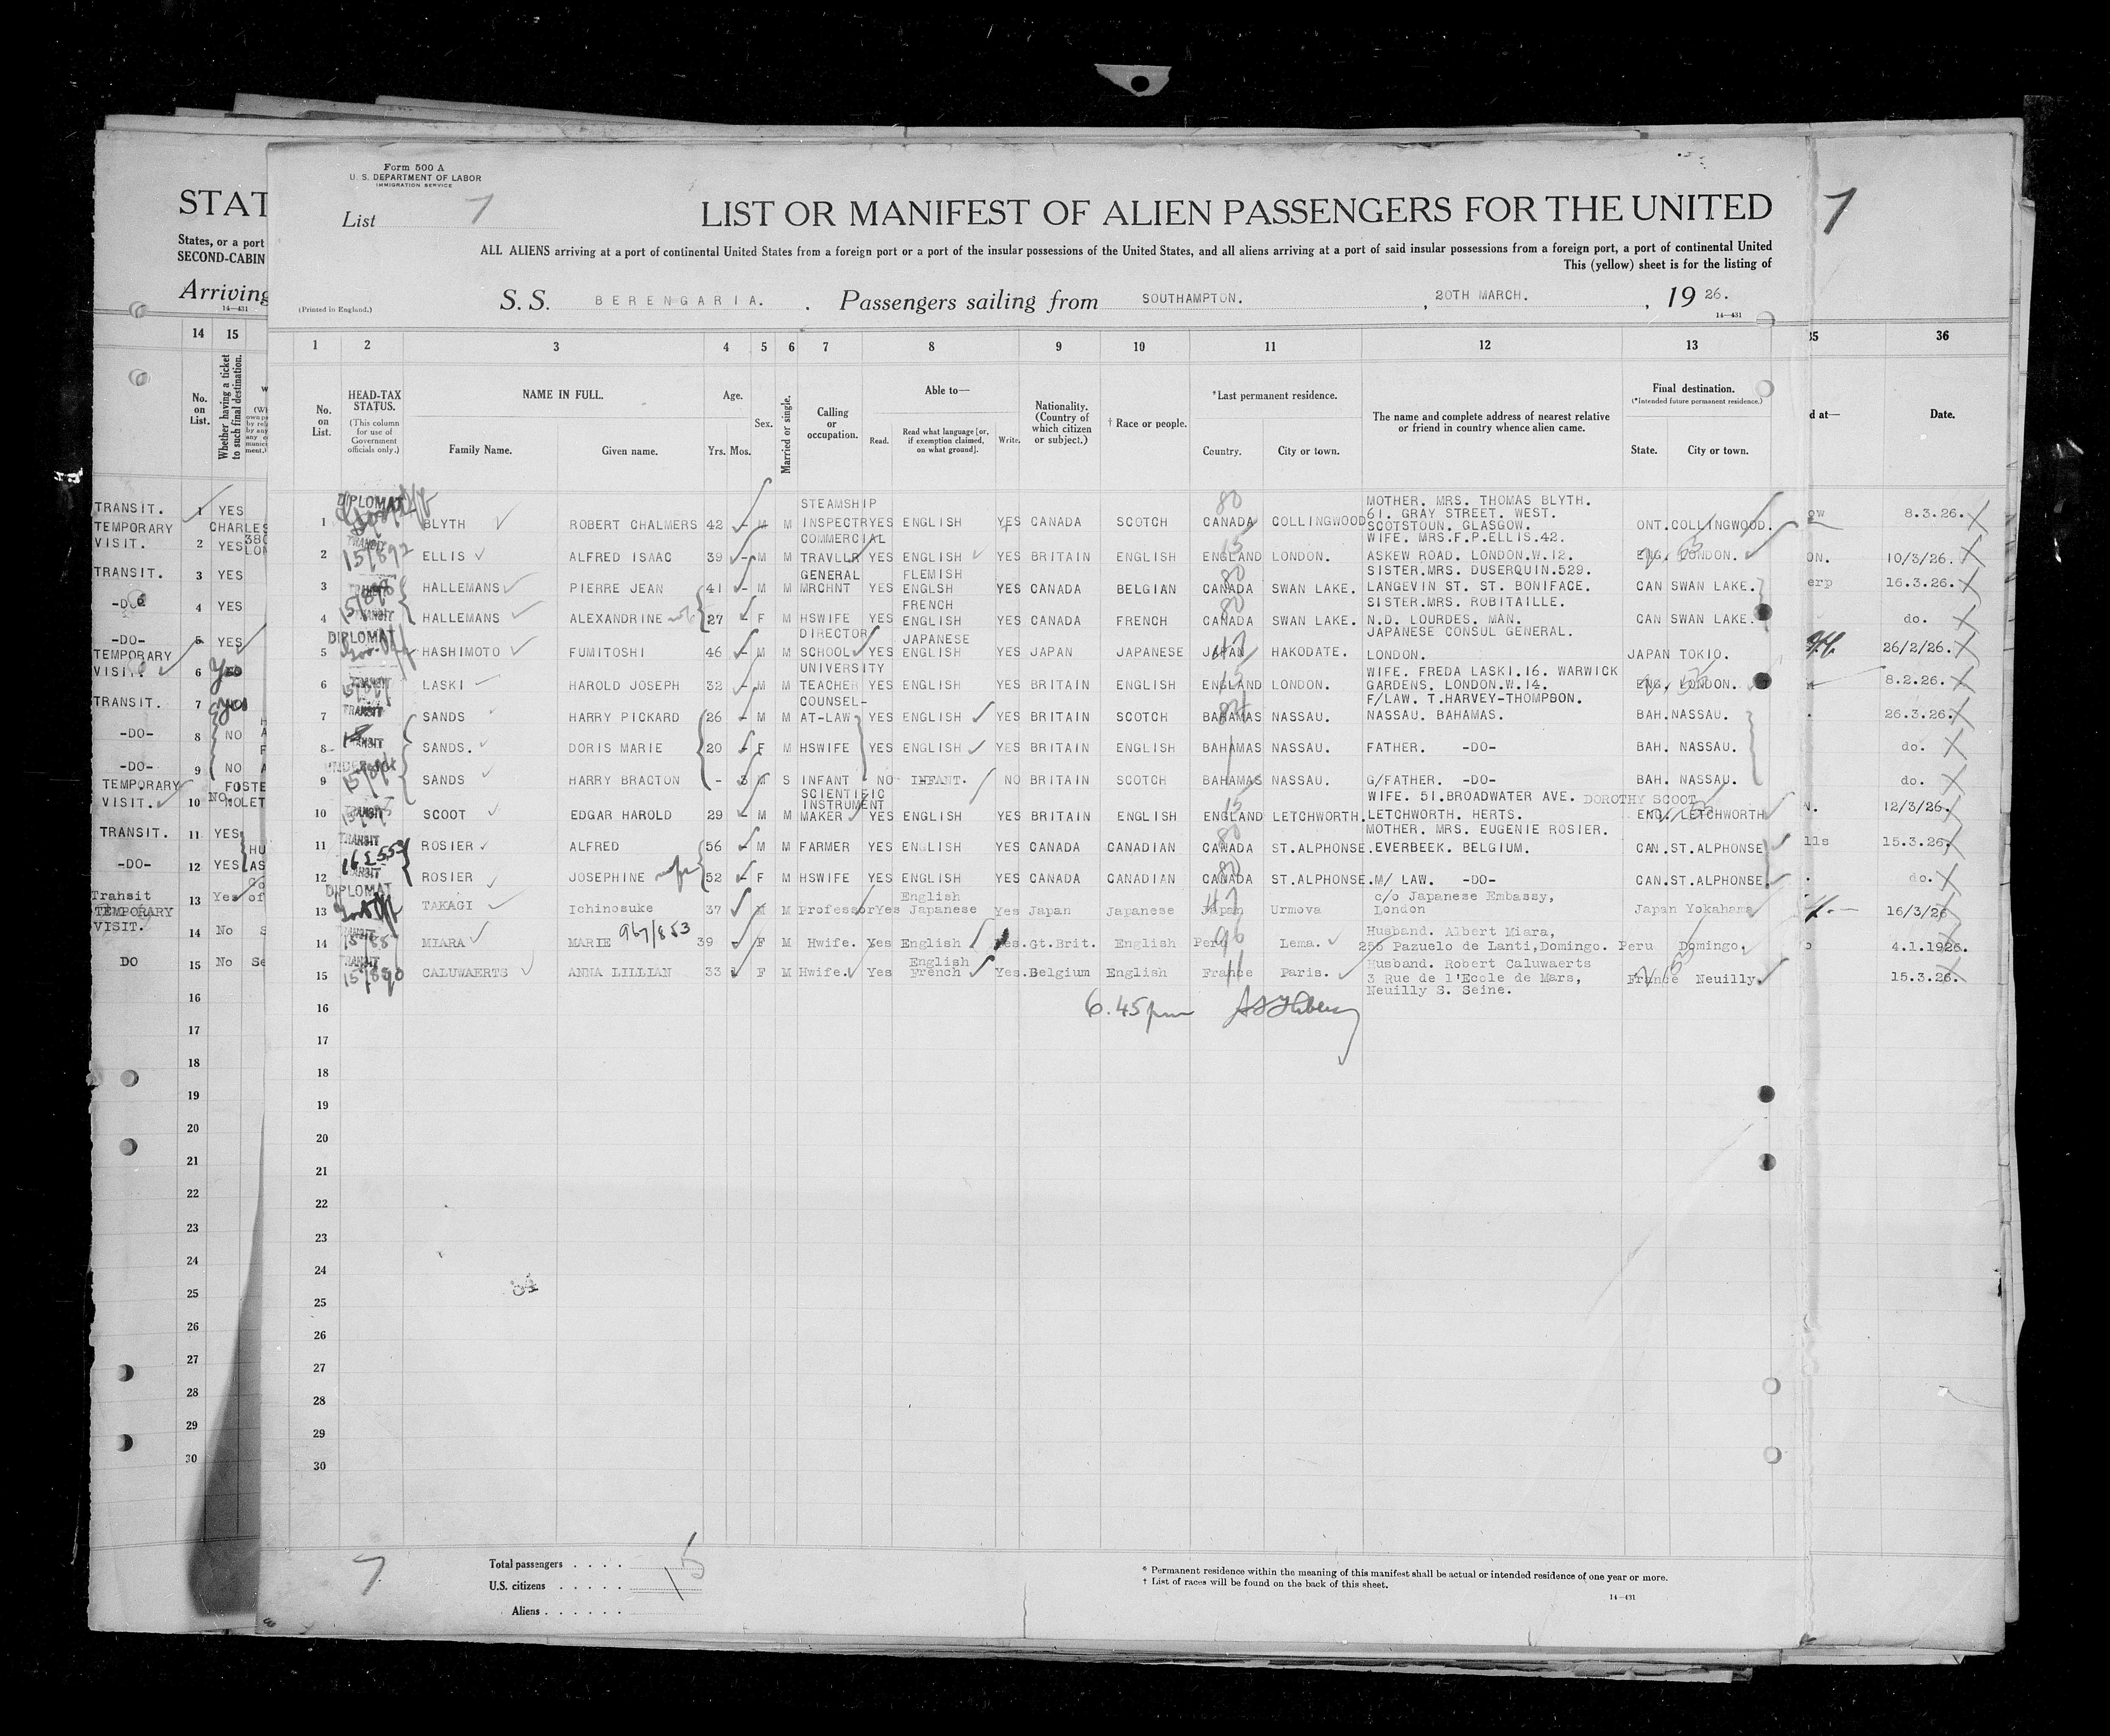 Form 500 A
U. S. DEPARTMENT OF LABOR
IMMIGRATION SERVICE
STAT
List 7
LIST OR MANIFEST OF ALIEN PASSENGERS FOR THE UNITED
7
States, or a port
SECOND-CABIN
ALL ALIENS arriving at a port of continental United States from a foreign port or a port of the insular possessions of the United States, and all aliens arriving at a port of said insular possessions from a foreign port, a port of continental United
This (yellow) sheet is for the listing of
Arriving
14—431
(Printed in England.)
S. S. BERENGARIA. Passengers sailing from SOUTHAMPTON. , 20TH MARCH. , 19 26.
14—431
14 15 1 2 3 4 5 6 7 8 9 10 11 12 13 35 36
No. on List.
Whether having a ticket to such final destination.
No. on List.
HEAD-TAX STATUS.
(This column for use of Government officials only.)
NAME IN FULL.
Family Name. Given name.
Age.
Yrs. Mos.
Sex.
Married or single.
Calling or occupation.
Able to—
Read. Read what language [or, if exemption claimed, on what ground]. Write.
Nationality. (Country of which citizen or subject.)
† Race or people.
*Last permanent residence.
Country. City or town.
The name and complete address of nearest relative or friend in country whence alien came.
Final destination.
(*Intended future permanent residence.)
State. City or town.
d at—
Date.
TRANSIT. 1 YES
DIPLOMAT
1 BLYTH ROBERT CHALMERS 42 - M M STEAMSHIP INSPECTR YES ENGLISH YES CANADA SCOTCH CANADA COLLINGWOOD MOTHER. MRS. THOMAS BLYTH. 61. GRAY STREET. WEST. SCOTSTOUN. GLASGOW. ONT. COLLINGWOOD. ow 8.3.26.
TEMPORARY VISIT. 2 YES CHARLES 380 LON
TRANSIT 15/892
2 ELLIS ALFRED ISAAC 39 - M M COMMERCIAL TRAVLLR YES ENGLISH YES BRITAIN ENGLISH ENGLAND LONDON. WIFE. MRS.F.P.ELLIS.42. ASKEW ROAD. LONDON.W.12. ENG. LONDON. ON. 10/3/26.
TRANSIT. 3 YES
3 HALLEMANS PIERRE JEAN 41 - M M GENERAL MRCHNT YES FLEMISH ENGLSH YES CANADA BELGIAN CANADA SWAN LAKE. SISTER.MRS. DUSERQUIN.529. LANGEVIN ST. ST. BONIFACE. CAN SWAN LAKE. erp 16.3.26.
-DO- 4 YES
TRANSIT
4 HALLEMANS ALEXANDRINE 27 - F M HSWIFE YES FRENCH ENGLISH YES CANADA FRENCH CANADA SWAN LAKE. SISTER.MRS. ROBITAILLE. N.D. LOURDES. MAN. CAN SWAN LAKE. do.
-DO- 5 YES
DIPLOMAT
5 HASHIMOTO FUMITOSHI 46 - M M DIRECTOR SCHOOL YES JAPANESE ENGLISH YES JAPAN JAPANESE JAPAN HAKODATE. JAPANESE CONSUL GENERAL. LONDON. JAPAN TOKIO. 26/2/26.
TEMPORARY VISIT. 6 Yes
TRANSIT
6 LASKI HAROLD JOSEPH 32 - M M UNIVERSITY TEACHER YES ENGLISH YES BRITAIN ENGLISH ENGLAND LONDON. WIFE. FREDA LASKI.16. WARWICK GARDENS. LONDON.W.14. ENG. LONDON. 8.2.26.
TRANSIT. 7
TRANSIT
7 SANDS HARRY PICKARD 26 - M M COUNSEL-AT-LAW YES ENGLISH YES BRITAIN SCOTCH BAHAMAS NASSAU. F/LAW. T.HARVEY-THOMPBON. NASSAU. BAHAMAS. BAH. NASSAU. 26.3.26.
-DO- 8 NO
TRANSIT
8 SANDS. DORIS MARIE 20 - F M HSWIFE YES ENGLISH YES BRITAIN ENGLISH BAHAMAS NASSAU. FATHER. -DO- BAH. NASSAU. do.
-DO- 9 NO
9 SANDS HARRY BRACTON - 3 M S INFANT NO INFANT. NO BRITAIN SCOTCH BAHAMAS NASSAU. G/FATHER. -DO- BAH. NASSAU. do.
TEMPORARY VISIT. 10 No. FOSTE MOLET
TRANSIT
10 SCOOT EDGAR HAROLD 29 - M M SCIENTIFIC INSTRUMENT MAKER YES ENGLISH YES BRITAIN ENGLISH ENGLAND LETCHWORTH. WIFE. 51.BROADWATER AVE. DOROTHY SCOOT LETCHWORTH. HERTS. ENG. LETCHWORTH N. 12/3/26.
TRANSIT. 11 YES HU
TRANSIT
11 ROSIER ALFRED 56 - M M FARMER YES ENGLISH YES CANADA CANADIAN CANADA ST.ALPHONSE. MOTHER. MRS. EUGENIE ROSIER. EVERBEEK. BELGIUM. CAN. ST.ALPHONSE lls 15.3.26.
-DO- 12 YES AS
TRANSIT
12 ROSIER JOSEPHINE 52 - F M HSWIFE YES ENGLISH YES CANADA CANADIAN CANADA ST.ALPHONSE. M/ LAW. -DO- CAN. ST.ALPHONSE. do.
Transit 13 Yes of
DIPLOMAT
13 TAKAGI Ichinosuke 37 M M Professor Yes English Japanese Yes Japan Japanese Japan Urmova c/o Japanese Embassy, London Japan Yokahama 16/3/26
TEMPORARY VISIT. 14 No S
TRANSIT
14 MIARA MARIE 967/853 39 - F M Hwife. Yes English Yes. Gt.Brit. English Peru Lema. Husband. Albert Miara, 256 Pazuelo de Lanti,Domingo. Peru Domingo. 4.1.1926.
DO 15 No Se
TRANSIT 15/890
15 CALUWAERTS ANNA LILLIAN 33 F M Hwife. Yes English French Yes. Belgium English France Paris. Husband. Robert Caluwaerts 3 Rue de l'Ecole de Mars, Neuilly S. Seine. France Neuilly. 15.3.26.
16 16 6.45pm
17 17
18 18
19 19
20 20
21 21
22 22
23 23
24 24
25 25
26 26
27 27
28 28
29 29
30 30
7
Total passengers . . . . 15
U.S. citizens . . . . .
Aliens . . . . . .
* Permanent residence within the meaning of this manifest shall be actual or intended residence of one year or more.
† List of races will be found on the back of this sheet.
14—431